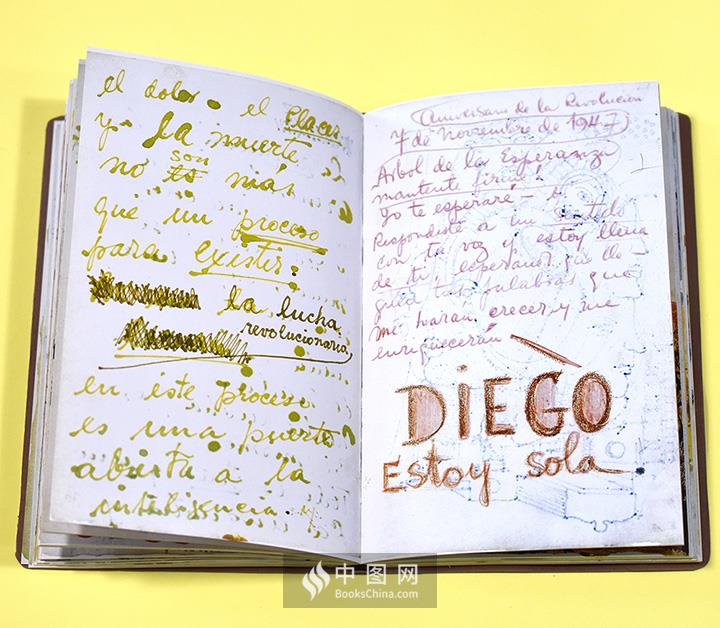 el dolor. el Placer
y la muerte
son
no
más
que un proceso
para existir.
la lucha
revolucionaria
en este proceso
es una puerta
abierta a la
inteligencia. y
Aniversario de la Revolución
7 de Noviembre de 1947
Arbol de la Esperanza
mantente firme!
Yo te esperaré – b
Respondiste a un sentido
con tu voz y estoy llena
de ti, esperando que lle-
guen tus palabras que
me harán crecer y me
enriquecerán
DIEGO
Estoy sola
中图网
BooksChina.com